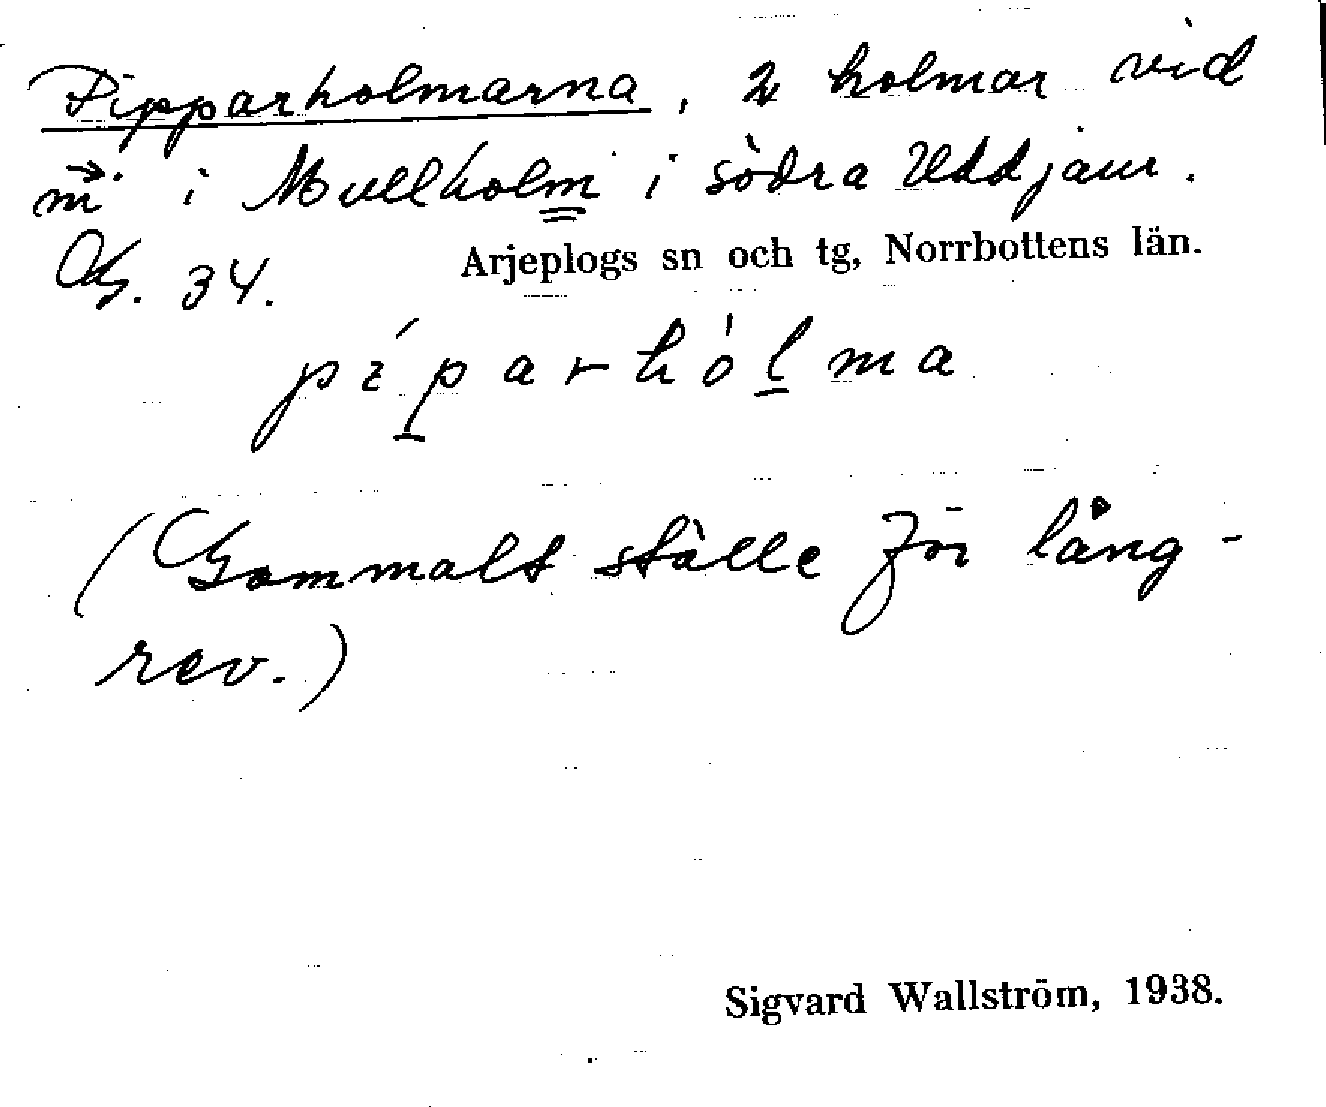 Pipparholmarna, 2 holmar vid
m⃗ i Mullholm i södra Uddjaur.
34.
Arjeplogs sn och tg, Norrbottens län.
píparhólma
(Gammalt ställe för lång-
rev.)
Sigvard Wallström, 1938.